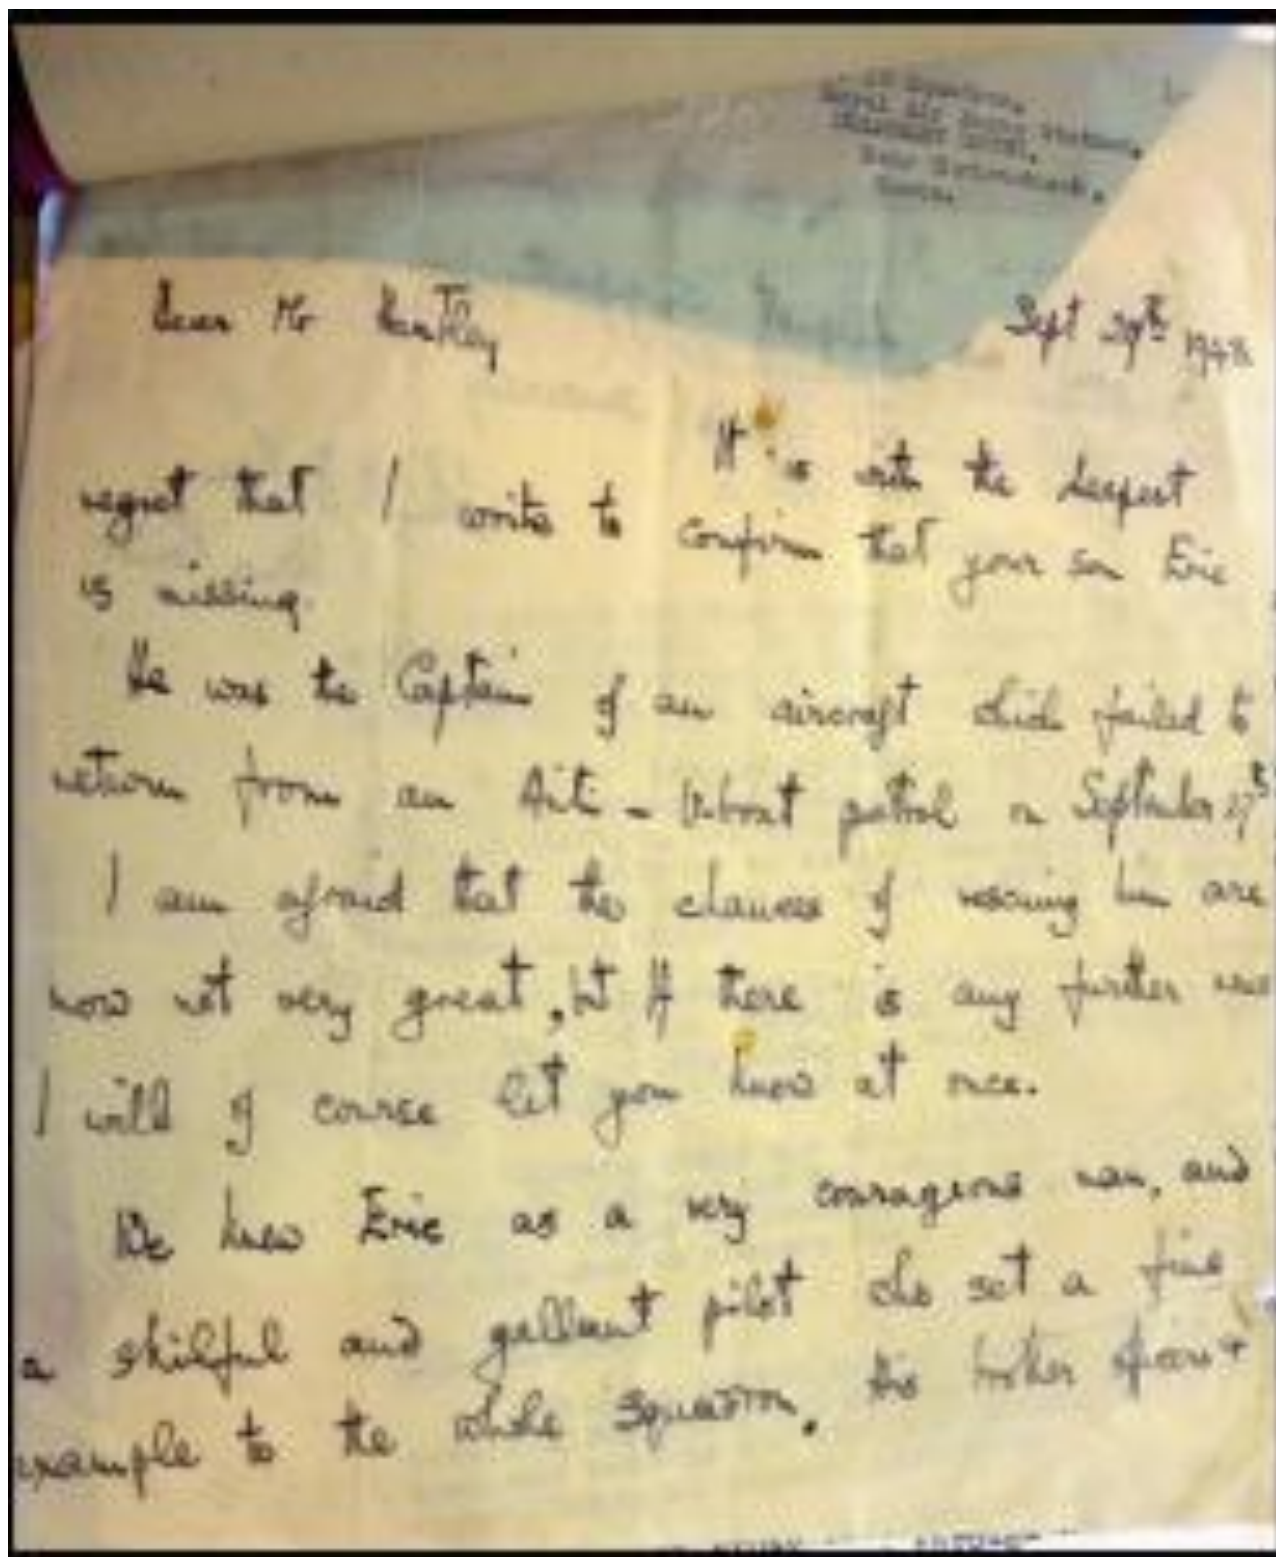 Royal Air Force Station,
Dear Mr Hartley
Sept 29th 194
It is with the deepest
regret that I write to confirm that your son Eric
is missing.
He was the Captain of an aircraft which failed to
return from an Anti - Uboat patrol on September 27th
I am afraid that the chances of rescuing him are
now not very great, but if there is any further
I will of course let you know at once.
We knew Eric as a very courageous man, and
a skilful and gallant pilot who set a fine
example to the whole squadron. His brother officers +